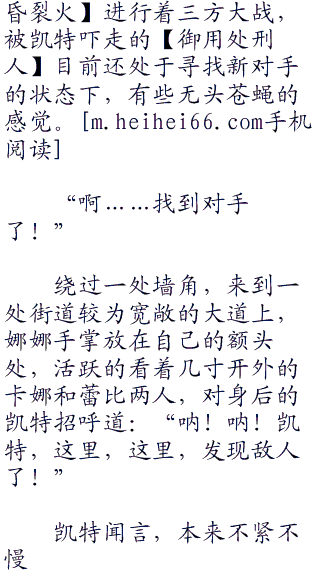 昏裂火】进行着三方大战，
被凯特吓走的【御用处刑
人】目前还处于寻找新对手
的状态下，有些无头苍蝇的
感觉。[m.heihei66.com手机
阅读]
“啊……找到对手
了！”
绕过一处墙角，来到一
处街道较为宽敞的大道上，
娜娜手掌放在自己的额头
处，活跃的看着几寸开外的
卡娜和蕾比两人，对身后的
凯特招呼道：“呐！呐！凯
特，这里，这里，发现敌人
了！”
凯特闻言，本来不紧不
慢